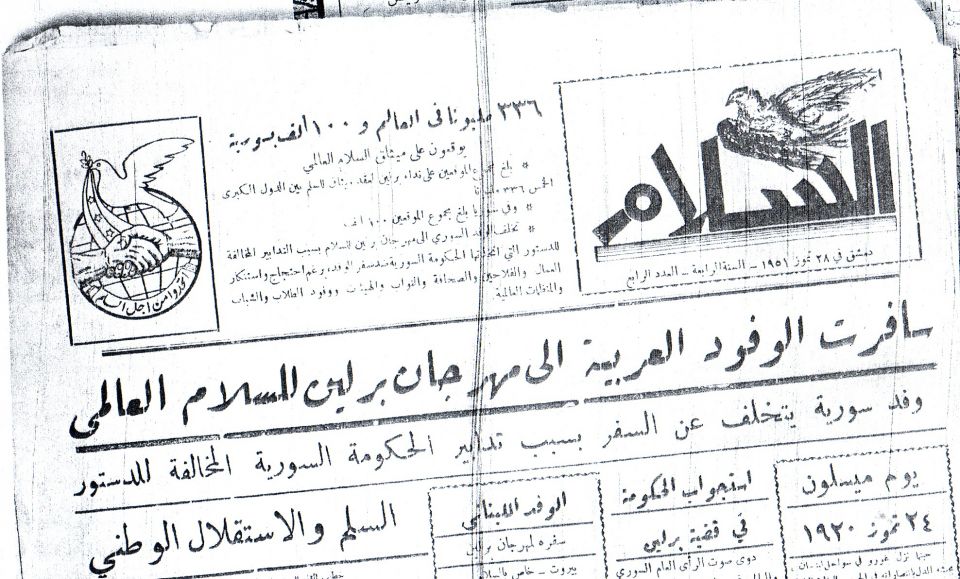 السلام
دمشق في ٢٨ تموز ١٩٥١ - السنة الرابعة - العدد الرابع
٣٣٦ مليونا في العالم و ١٠٠ الف بسورية
يوقعون على ميثاق السلام العالمي
* بلغ الموقعين على نداء برلين لعقد ميثاق للسلم بين الدول الكبرى
الخمس ٣٣٦ مليونا
* وفي سوريا بلغ مجموع الموقعين ١٠٠ الف
* تخلف الوفد السوري الى مهرجان برلين للسلام بسبب التدابير المخالفة
للدستور التي اتخذتها الحكومة السورية ضد سفر الوفد، رغم احتجاج واستنكار
العمال والفلاحين والصحافة والنواب والهيئات ووفود الطلاب والشباب
والمنظمات العالمية
اتحدوا من اجل السلم
سافرت الوفود العربية الى مهرجان برلين للسلام العالمي
وفد سورية يتخلف عن السفر بسبب تدابير الحكومة السورية المخالفة للدستور
يوم ميسلون
٢٤ تموز ١٩٢٠
استجواب الحكومة
في قضية برلين
دوى صوت الرأي العام السوري
الوفد اللبناني
سفره لمهرجان برلين
بيروت - خاص بالسلام
السلم والاستقلال الوطني